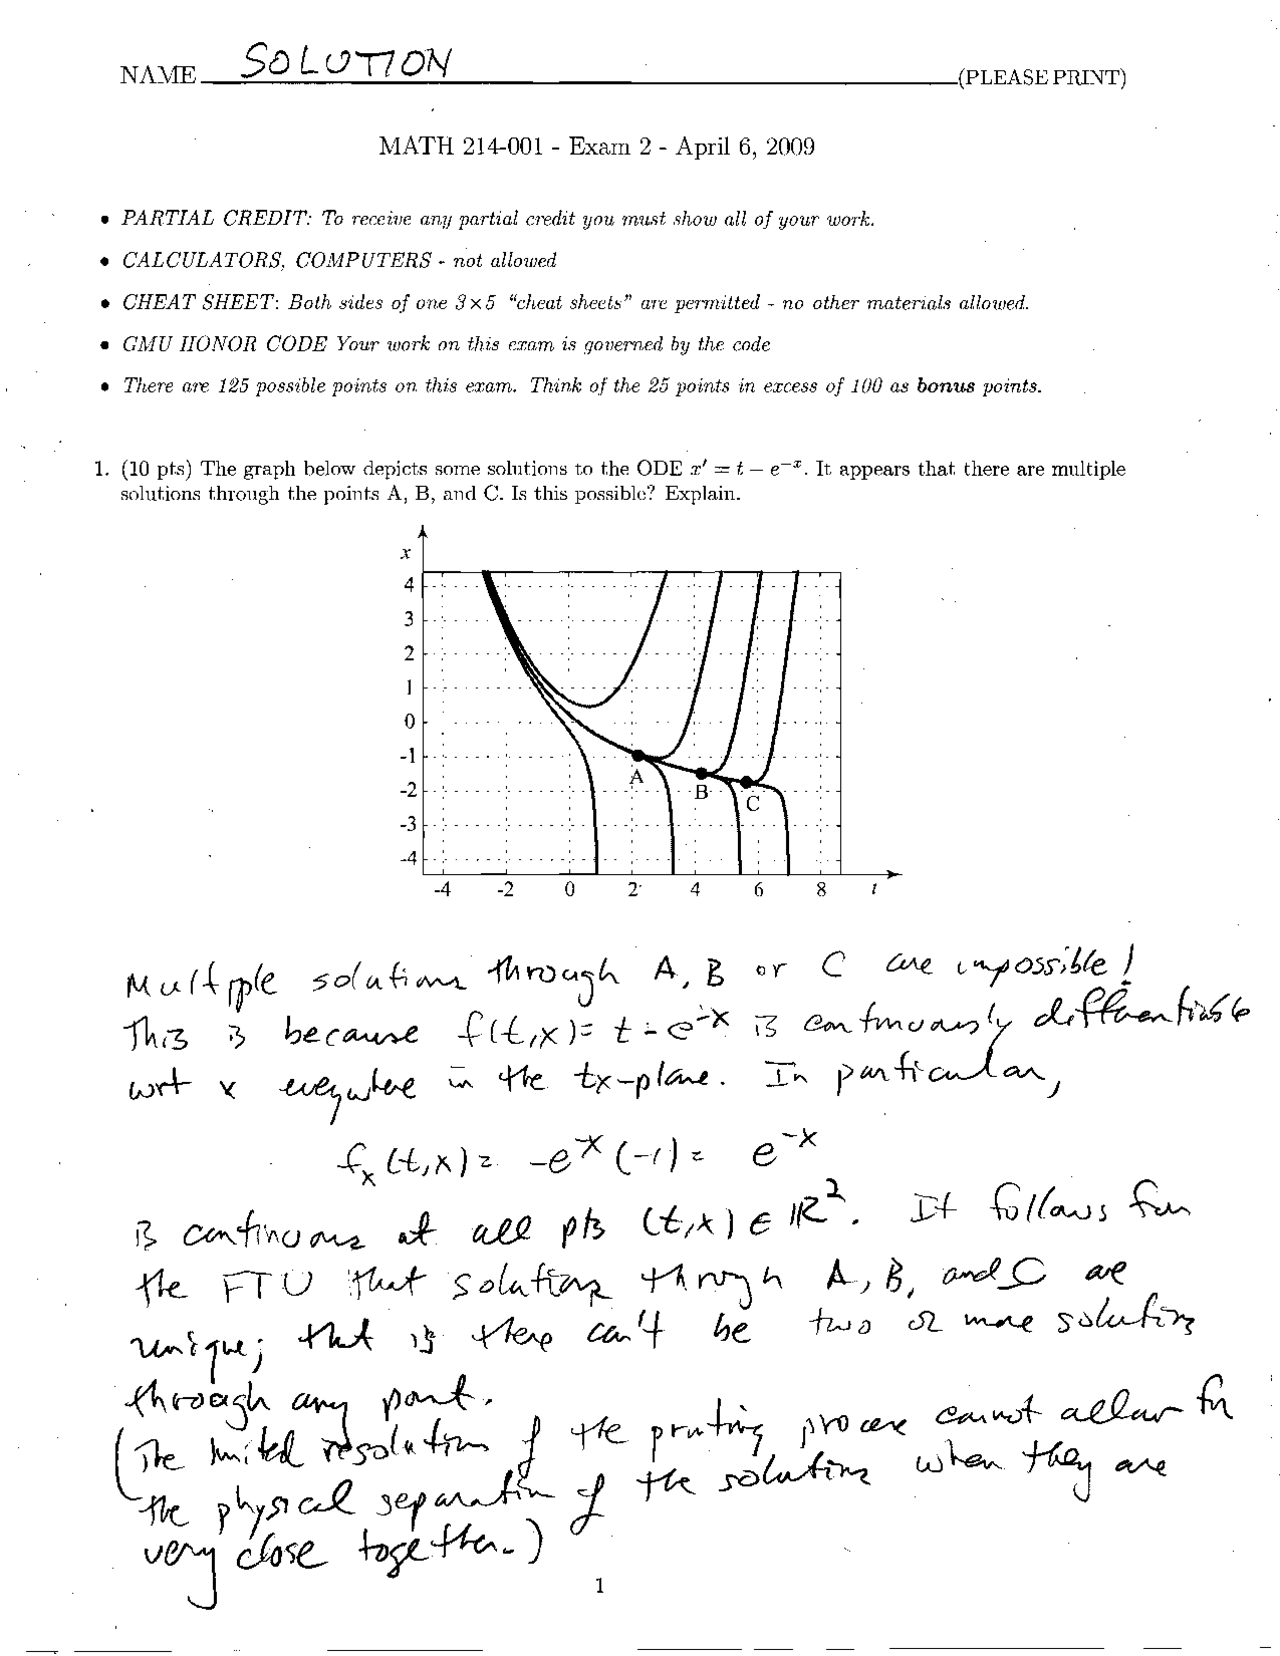 NAME SOLUTION (PLEASE PRINT)
MATH 214-001 - Exam 2 - April 6, 2009
• PARTIAL CREDIT: To receive any partial credit you must show all of your work.
• CALCULATORS, COMPUTERS - not allowed
• CHEAT SHEET: Both sides of one 3×5 "cheat sheets" are permitted - no other materials allowed.
• GMU HONOR CODE Your work on this exam is governed by the code
• There are 125 possible points on this exam. Think of the 25 points in excess of 100 as bonus points.
1. (10 pts) The graph below depicts some solutions to the ODE x′ = t − e⁻ˣ. It appears that there are multiple
solutions through the points A, B, and C. Is this possible? Explain.
x
4
3
2
1
0
-1
-2
-3
-4
A
B
C
-4 -2 0 2 4 6 8 t
Multiple solutions through A, B or C are impossible!
This is because f(t,x) = t - e⁻ˣ is continuously differentiable
wrt x everywhere in the tx-plane. In particular,
fₓ(t,x) = -e⁻ˣ(-1) = e⁻ˣ
is continuous at all pts (t,x) ∈ ℝ². It follows from
the FTU that solutions through A, B, and C are
unique; that is there can't be two or more solutions
through any point.
(The limited resolution of the printing process cannot allow for
the physical separation of the solutions when they are
very close together.)
1